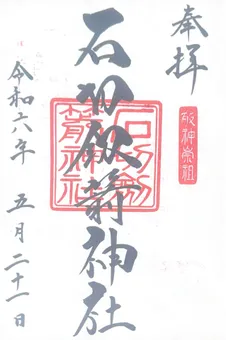 奉拝
敬神崇祖
石切劔箭神社
石切劔
箭神社
令和六年 五月二十一日